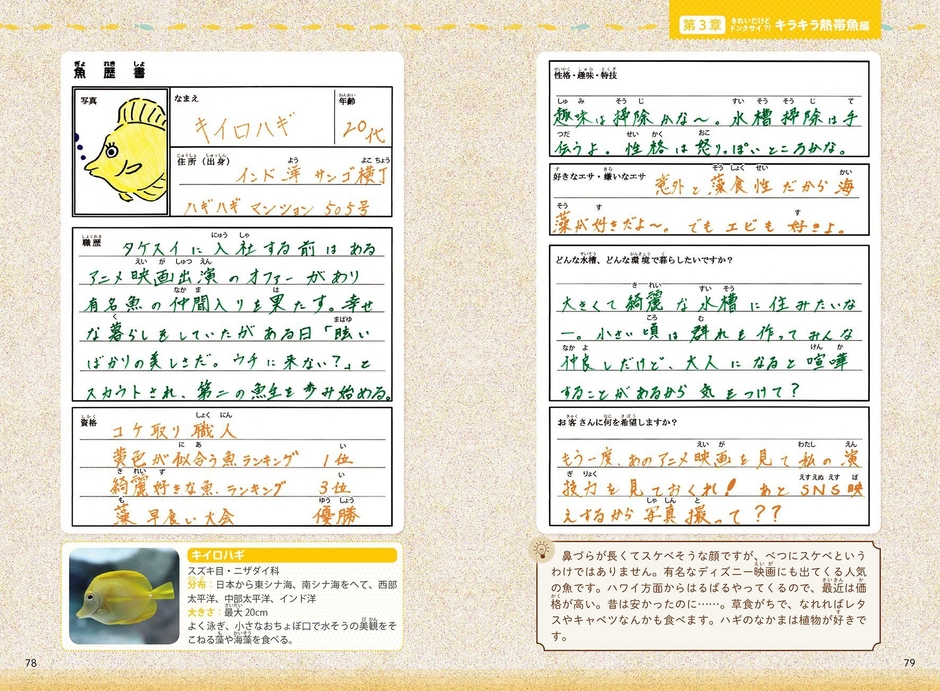 第3章
きれいだけど
ドンクサイ?!
キラキラ熱帯魚編
魚歴書
写真
なまえ
キイロハギ
年齢
20代
住所(出身)
インド洋 サンゴ横丁
ハギハギ マンション 505号
職歴
タケスイに入社する前はある
アニメ映画出演のオファーがあり
有名魚の仲間入りを果たす。幸せ
な暮らしをしていたがある日「眩い
ばかりの美しさだ。ウチに来ない?」と
スカウトされ、第二の魚生を歩み始める。
資格
コケ取り職人
黄色が似合う魚ランキング 1位
綺麗好きな魚ランキング 3位
藻早食い大会 優勝
キイロハギ
スズキ目・ニザダイ科
分布:日本から東シナ海、南シナ海をへて、西部
太平洋、中部太平洋、インド洋
大きさ:最大20cm
よく泳ぎ、小さなおちょぼ口で水そうの美観をそ
こねる藻や海藻を食べる。
78
性格・趣味・特技
趣味は掃除かな〜。水槽掃除は手
伝うよ。性格は怒りっぽいところかな。
好きなエサ・嫌いなエサ
意外と藻食性だから海
藻が好きだよ〜。でもエビも好きよ。
どんな水槽、どんな環境で暮らしたいですか?
大きくて綺麗な水槽に住みたいな
ー。小さい頃は群れを作ってみんな
仲良しだけど、大人になると喧嘩
することがあるから気をつけて?
お客さんに何を希望しますか?
もう一度、あのアニメ映画を見て私の演
技力を見ておくれ! あとSNS映
えするから写真撮って??
鼻づらが長くてスケベそうな顔ですが、べつにスケベという
わけではありません。有名なディズニー映画にも出てくる人気
の魚です。ハワイ方面からはるばるやってくるので、最近は価
格が高い。昔は安かったのに……。草食がちで、なれればレタ
スやキャベツなんかも食べます。ハギのなかまは植物が好きで
す。
79